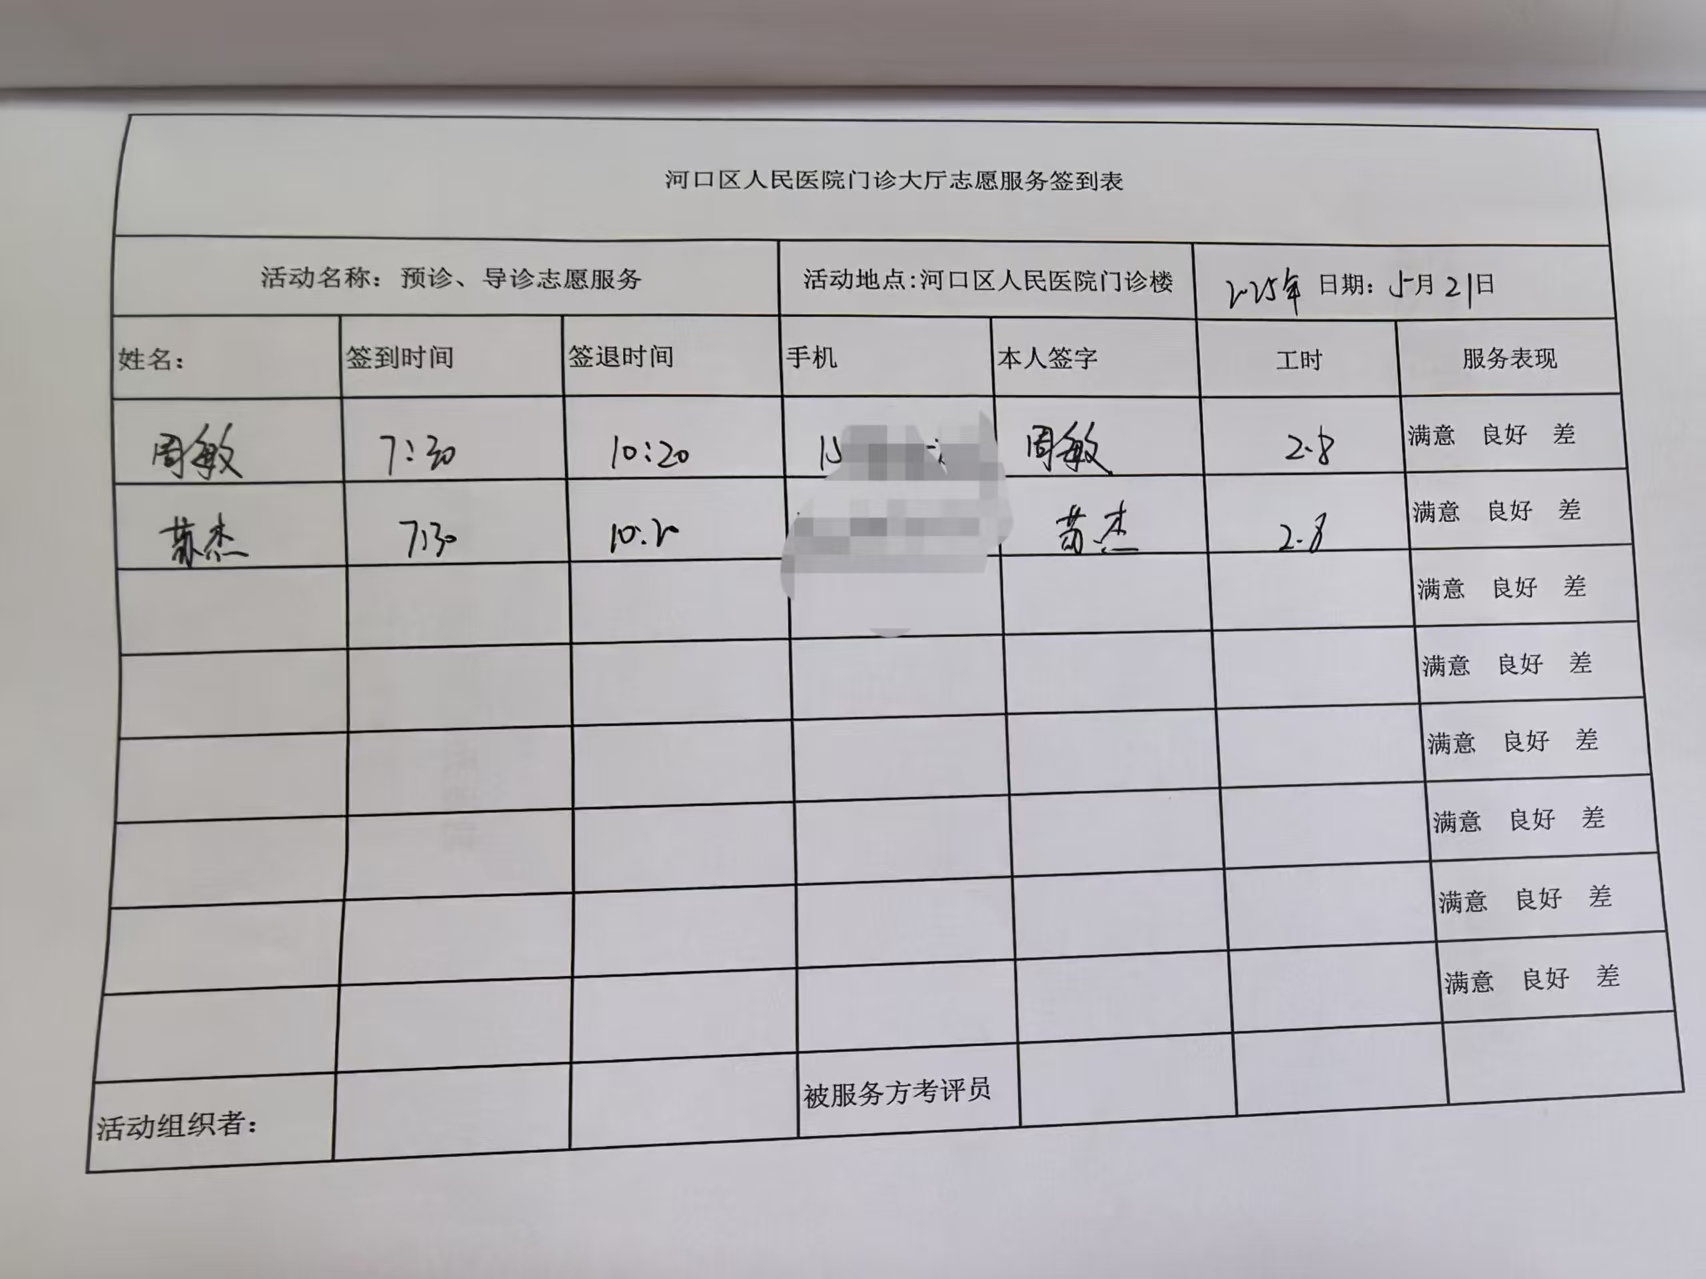 河口区人民医院门诊大厅志愿服务签到表
活动名称：预诊、导诊志愿服务 活动地点:河口区人民医院门诊楼 2025年 日期：5月21日
姓名： 签到时间 签退时间 手机 本人签字 工时 服务表现
周敏 7:30 10:20 15 周敏 2.8 满意 良好 差
苏杰 7:30 10:20 苏杰 2.8 满意 良好 差
满意 良好 差
满意 良好 差
满意 良好 差
满意 良好 差
满意 良好 差
满意 良好 差
活动组织者： 被服务方考评员